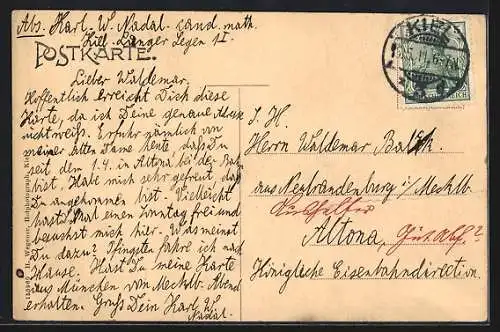 Abs. Karl. W. Nadal. cand. math.
Kiel. Langer Segen 1 I
POSTKARTE.
Lieber Waldemar.
Hoffentlich erreicht Dich diese
Karte, da ich Deine genaue
nicht weiß. Erfuhr nämlich von
meiner alten Dame heute, daß Du
seit dem 1.4. in Altona bei der Bah
bist. Habe mich sehr gefreut, daß
Du angekommen bist. Vielleicht
hast Du mal einen Sonntag frei und
besuchst mich hier. Was meinst
Du dazu? Pfingsten fahre ich nach
Hause. Hast Du meine Karte
aus München vom Mecklb. Abend
erhalten. Gruß Dein Karl W.
Nadal.
KIEL
S. H.
Herrn Waldemar
aus Neubrandenburg i/Mecklb.
Altona,
Königliche Eisenbahndirection.